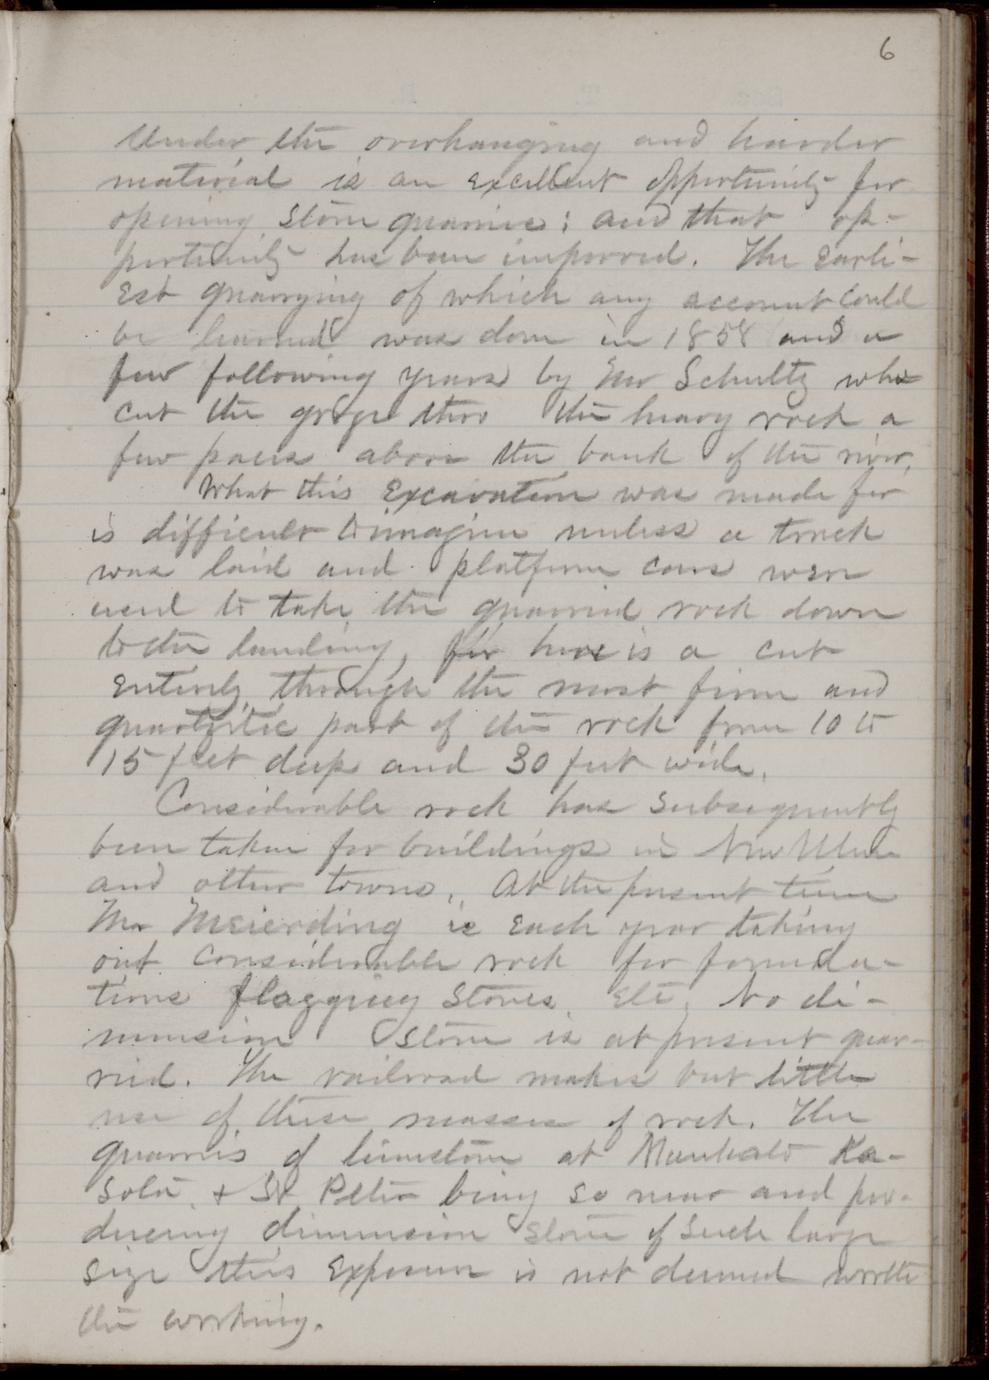 6
Under the overhanging and harder
material is an excellent opportunity for
opening stone quarries; and that op-
portunity has been improved. The earli-
est quarrying of which any account could
be learned was done in 1858 and a
few following years by Mr Schultz who
cut the gorge thro the heavy rock a
few paces above the bank of the river.
What this excavation was made for
is difficult to imagine unless a track
was laid and platform cars were
used to take the quarried rock down
to the landing, for here is a cut
entirely through the most firm and
quartzitic part of the rock from 10 to
15 feet deep and 30 feet wide.
Considerable rock has subsequently
been taken for buildings in New Ulm
and other towns. At the present time
Mr Meierding is each year taking
out considerable rock for founda-
tions flagging stones etc. No di-
mension stone is at present quar-
ried. The railroad makes but little
use of these masses of rock. The
quarries of limestone at Mankato Ka-
sota & St Peter being so near and pro-
ducing dimension stone of such large
size this exposure is not deemed worth
the working.